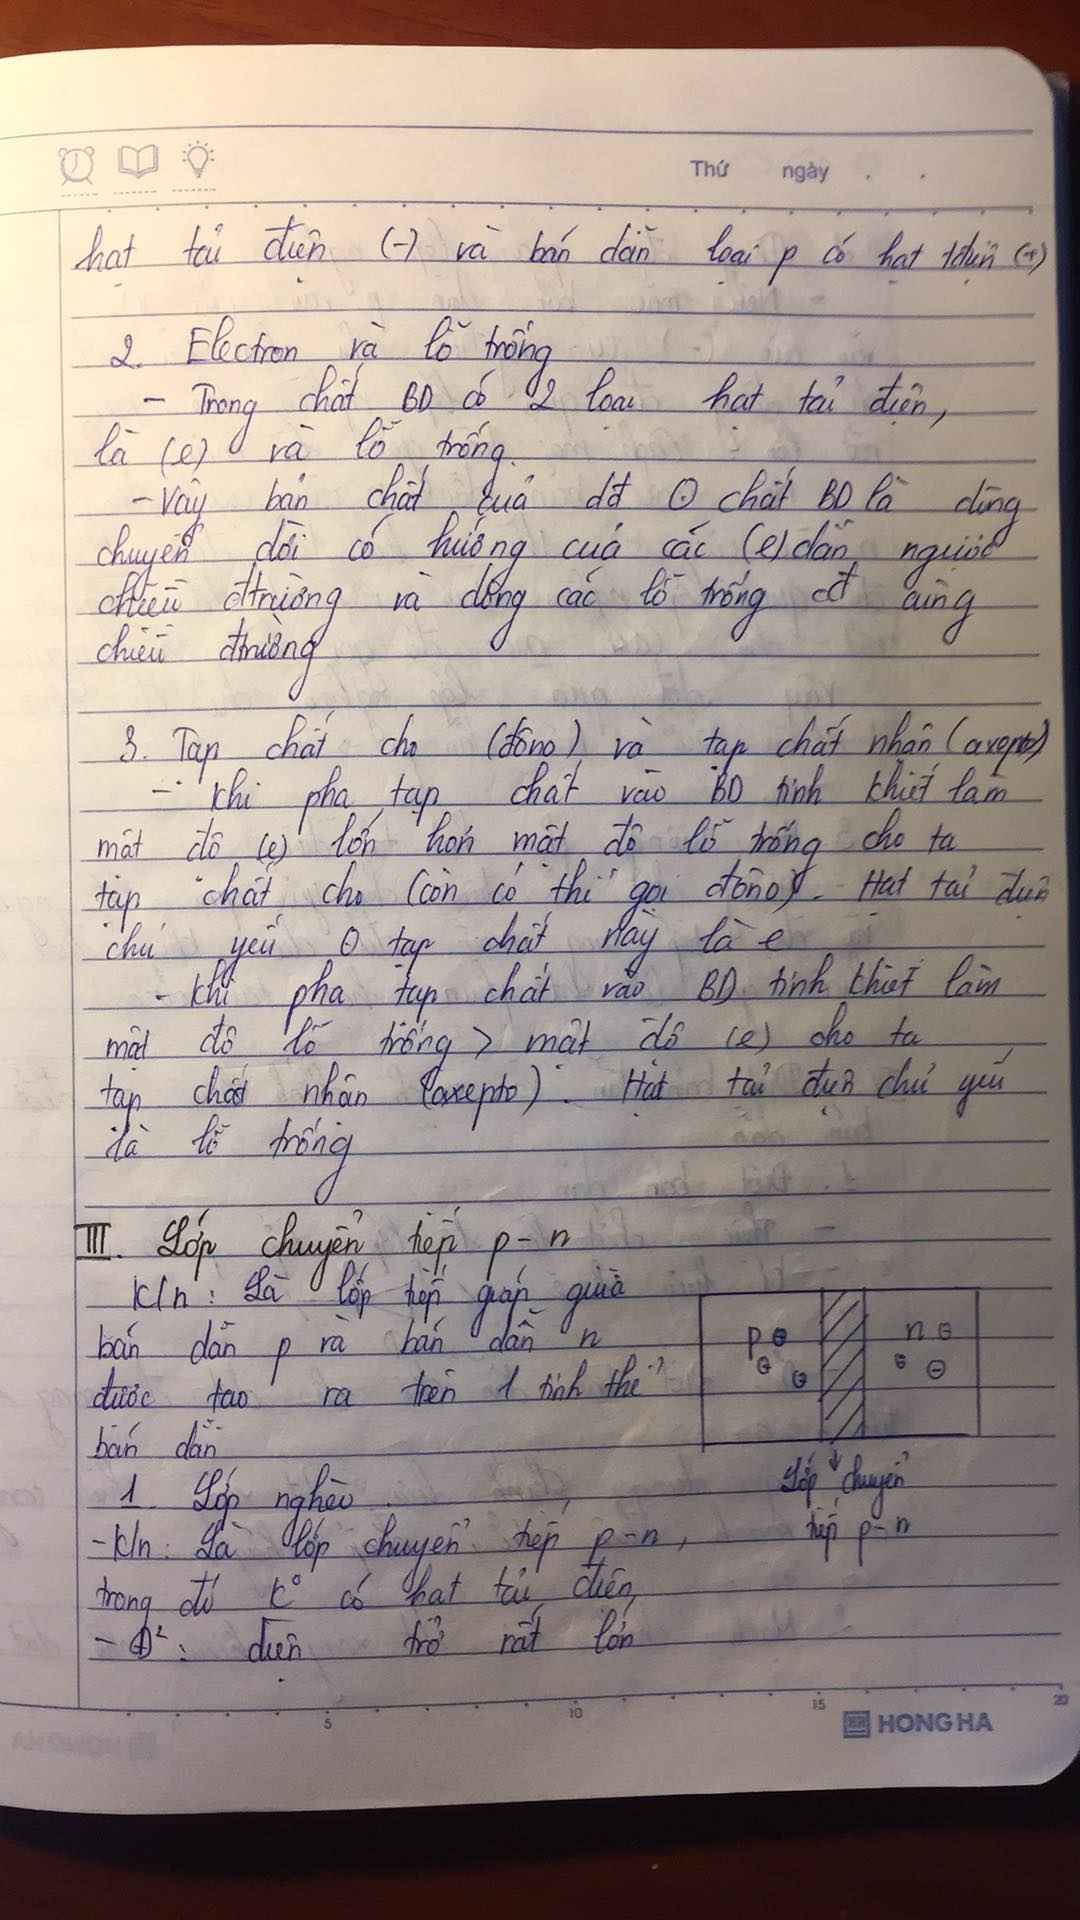 Thứ ngày . .
hạt tải điện (-) và bán dẫn loại p có hạt tđiện (+)
2. Electron và lỗ trống
- Trong chất BD có 2 loại hạt tải điện,
là (e) và lỗ trống.
- Vậy bản chất của dđ ⊙ chất BD là dòng
chuyển dời có hướng của các (e) dẫn ngược
chiều đtrường và dòng các lỗ trống cđ cùng
chiều đtrường
3. Tạp chất cho (đôno) và tạp chất nhận (axepto)
- Khi pha tạp chất vào BD tinh khiết làm
mật độ (e) lớn hơn mật độ lỗ trống cho ta
tạp chất cho (còn có thể gọi đôno). Hạt tải điện
chủ yếu ⊙ tạp chất này là e
- Khi pha tạp chất vào BD tinh khiết làm
mật độ lỗ trống > mật độ (e) cho ta
tạp chất nhận (axepto). Hạt tải điện chủ yếu
là lỗ trống
III. Lớp chuyển tiếp p-n
K/n: Là lớp tiếp giáp giữa
bán dẫn p và bán dẫn n
được tạo ra trên 1 tinh thể
bán dẫn
p ⊕
⊕ ⊕
n ⊖
⊖ ⊖
Lớp chuyển
tiếp p-n
1. Lớp nghèo
- K/n: Là lớp chuyển tiếp p-n,
trong đó k° có hạt tải điện,
- Đ²: điện trở rất lớn
5 10 15 20
HONG HA